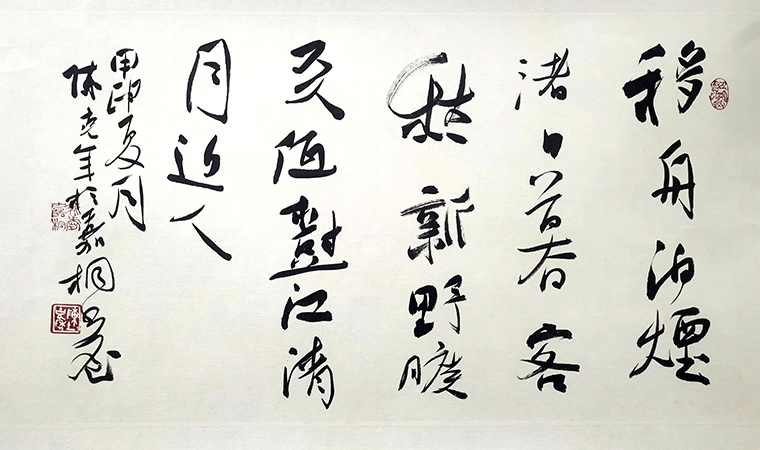 移舟泊煙
渚日暮客
愁新野曠
天低樹江清
月近人
夏月
陈克年於嘉桐